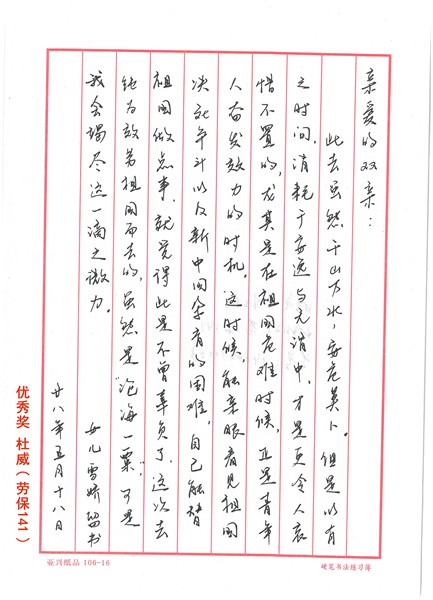 亲爱的双亲：
此去虽然千山万水，安危莫卜。但是以有
之时间，消耗于安逸与无谓中，才是更令人哀
惜不置的，尤其是在祖国危难时候，正是青年
人奋发效力的时机。这时候，能亲眼看见祖国
决死争斗以及新中国孕育的困难，自己能替
祖国做点事，就觉得此是不曾辜负了。这次去
纯为效劳祖国而去的，虽然是“沧海一粟”，可是
我会竭尽这一滴之微力。
女儿雪娇留书
廿八年五月十八日
优秀奖 杜威（劳保141）
亚兴纸品 106-16
硬笔书法练习簿